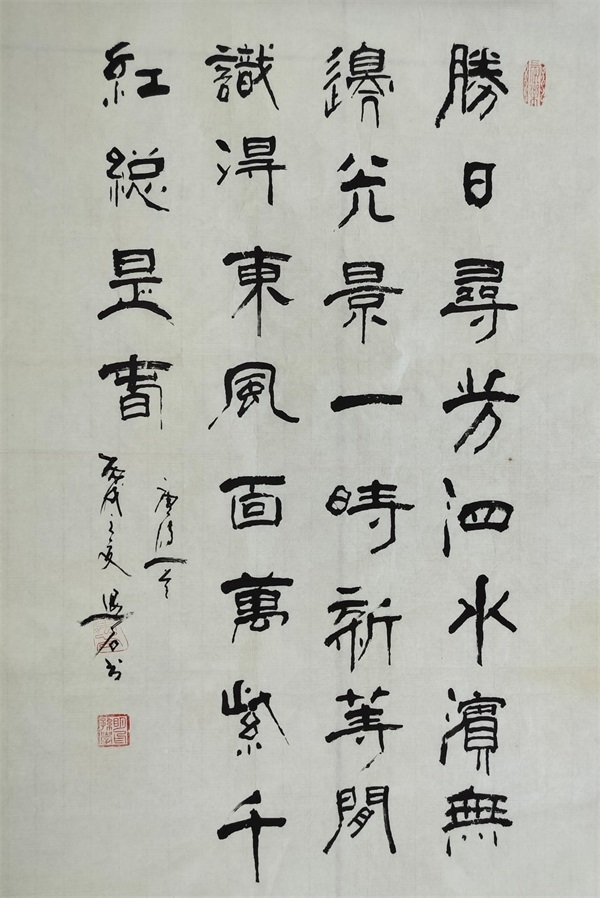 勝日尋芳泗水濱無
邊光景一時新等閒
識得東風面萬紫千
紅總是春
唐詩一首
丙戌之夏